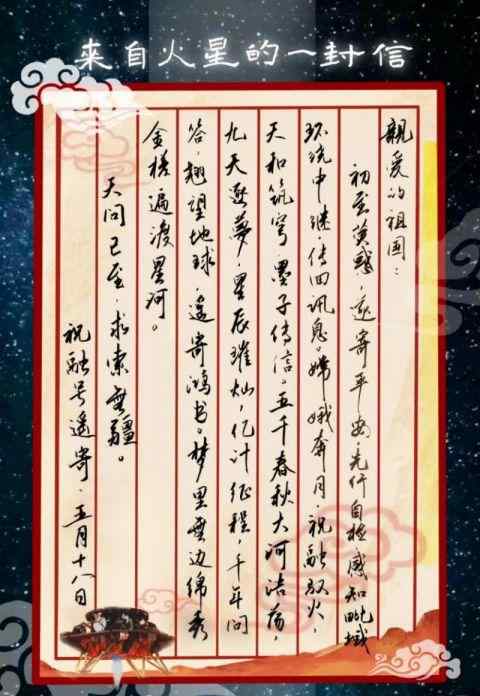 來自火星的一封信
親爱的祖国：
初至荧惑，遥寄平安。先行自检，感知毗域
环绕中继，传回讯息。嫦娥奔月，祝融驭火，
天和筑穹，墨子传信。五千春秋大河浩荡，
九天逐夢，星辰璀灿，亿计征程，千年问
答，翘望地球，遥寄鸿书。梦里無边锦秀
金槎遍渡星河。
天问已至，求索無疆。
祝融号遥寄，五月十八日